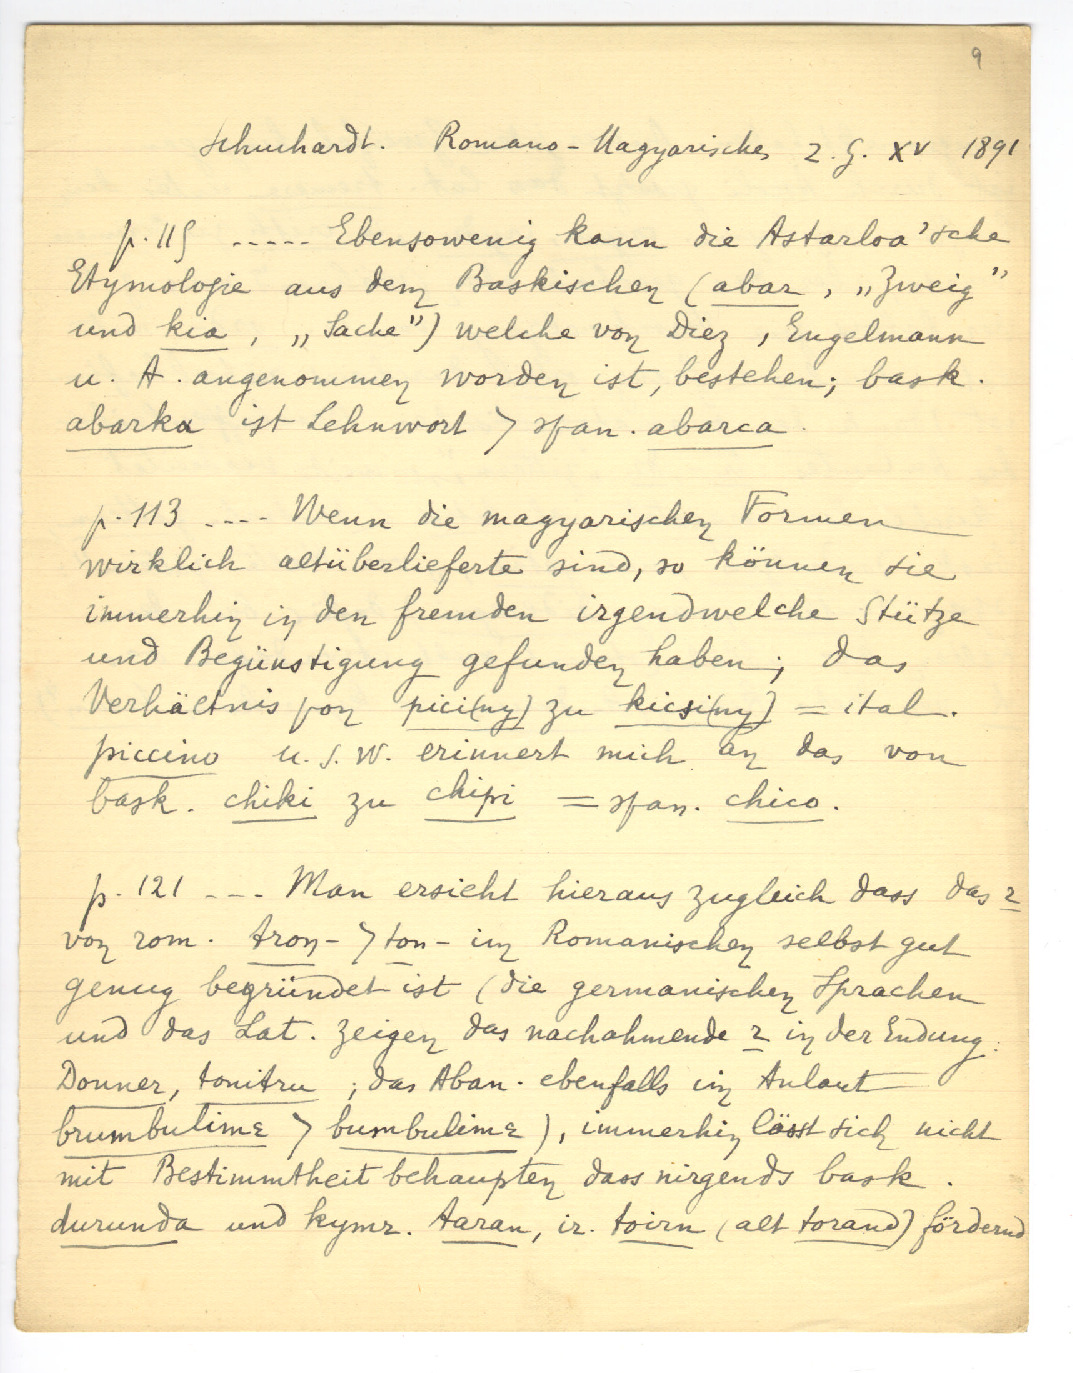 9
Schuchardt. Romano-Magyarisches Z. G. XV 1891
p. 115 ..... Ebensowenig kann die Astarloa'sche
Etymologie aus dem Baskischen (abar, „Zweig"
und kia, „Sache") welche von Diez, Engelmann
u. A. angenommen worden ist, bestehen; bask.
abarka ist Lehnwort > span. abarca.
p. 113 .... Wenn die magyarischen Formen
wirklich altüberlieferte sind, so können sie
immerhin in den fremden irgendwelche Stütze
und Begünstigung gefunden haben; das
Verhältnis von pici(ny) zu kicsi(ny) = ital.
piccino u. s. w. erinnert mich an das von
bask. chiki zu chipi = span. chico.
p. 121 ... Man ersieht hieraus zugleich dass das r
von rom. tron- > ton- im Romanischen selbst gut
genug begründet ist (die germanischen Sprachen
und das Lat. zeigen das nachahmende r in der Endung:
Donner, tonitru; das Aban. ebenfalls im Anlaut
brumbulimε > bumbulimε), immerhin lässt sich nicht
mit Bestimmtheit behaupten dass nirgends bask.
durunda und kymr. taran, ir. toirn (alt torand) fördernd